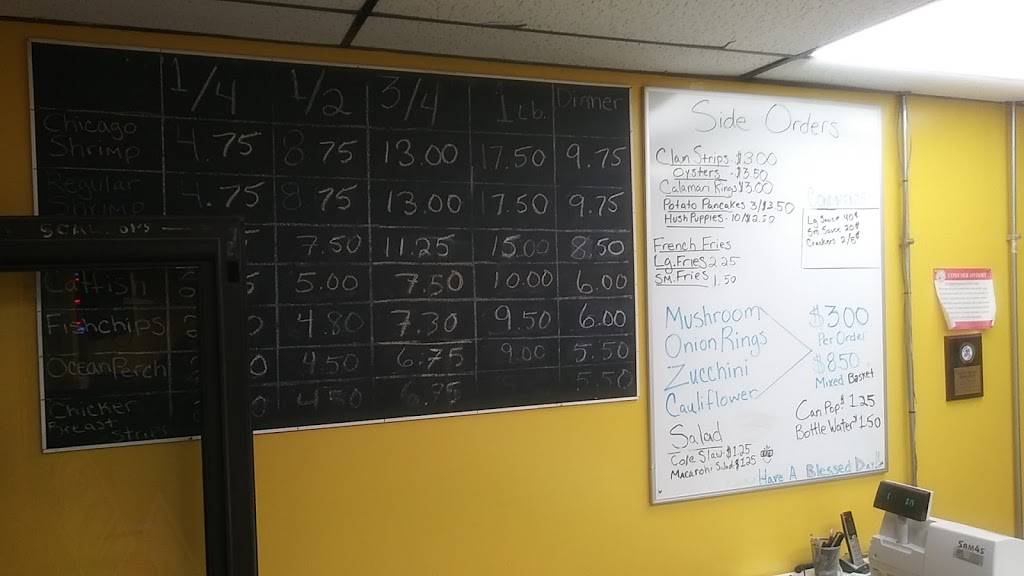 1/4 1/2 3/4 1 Lb. Dinner
Chicago
Shrimp 4.75 8 75 13.00 17.50 9.75
Regular
Shrimp 4.75 8 75 13.00 17.50 9.75
7.50 11.25 15.00 8.50
Catfish 5.00 7.50 10.00 6.00
Fishchips 4.80 7.30 9.50 6.00
Ocean Perch 4.50 6.75 9.00 5.50
Chicken 4.50 6.75 5.50
Breast
Strips
Side Orders
Clam Strips-$3.00
Oysters -$3.50
Calamari Rings $3.00
Potato Pancakes 3/$2.50
Hush Puppies-10/$2.50
French Fries
Lg. Fries 2.25
SM. Fries 1.50
Condiments
Lg Sauce 40¢
Sm Sauce 20¢
Crackers 2/5¢
Mushroom
Onion Rings
Zucchini
Cauliflower
$3.00
Per Order
$8.50
Mixed Basket
Can Pop $1.25
Bottle Water $1.50
Salad
Cole Slaw $1.25
Macaroni Salad $1.25
Have A Blessed Day!!
SAM4S